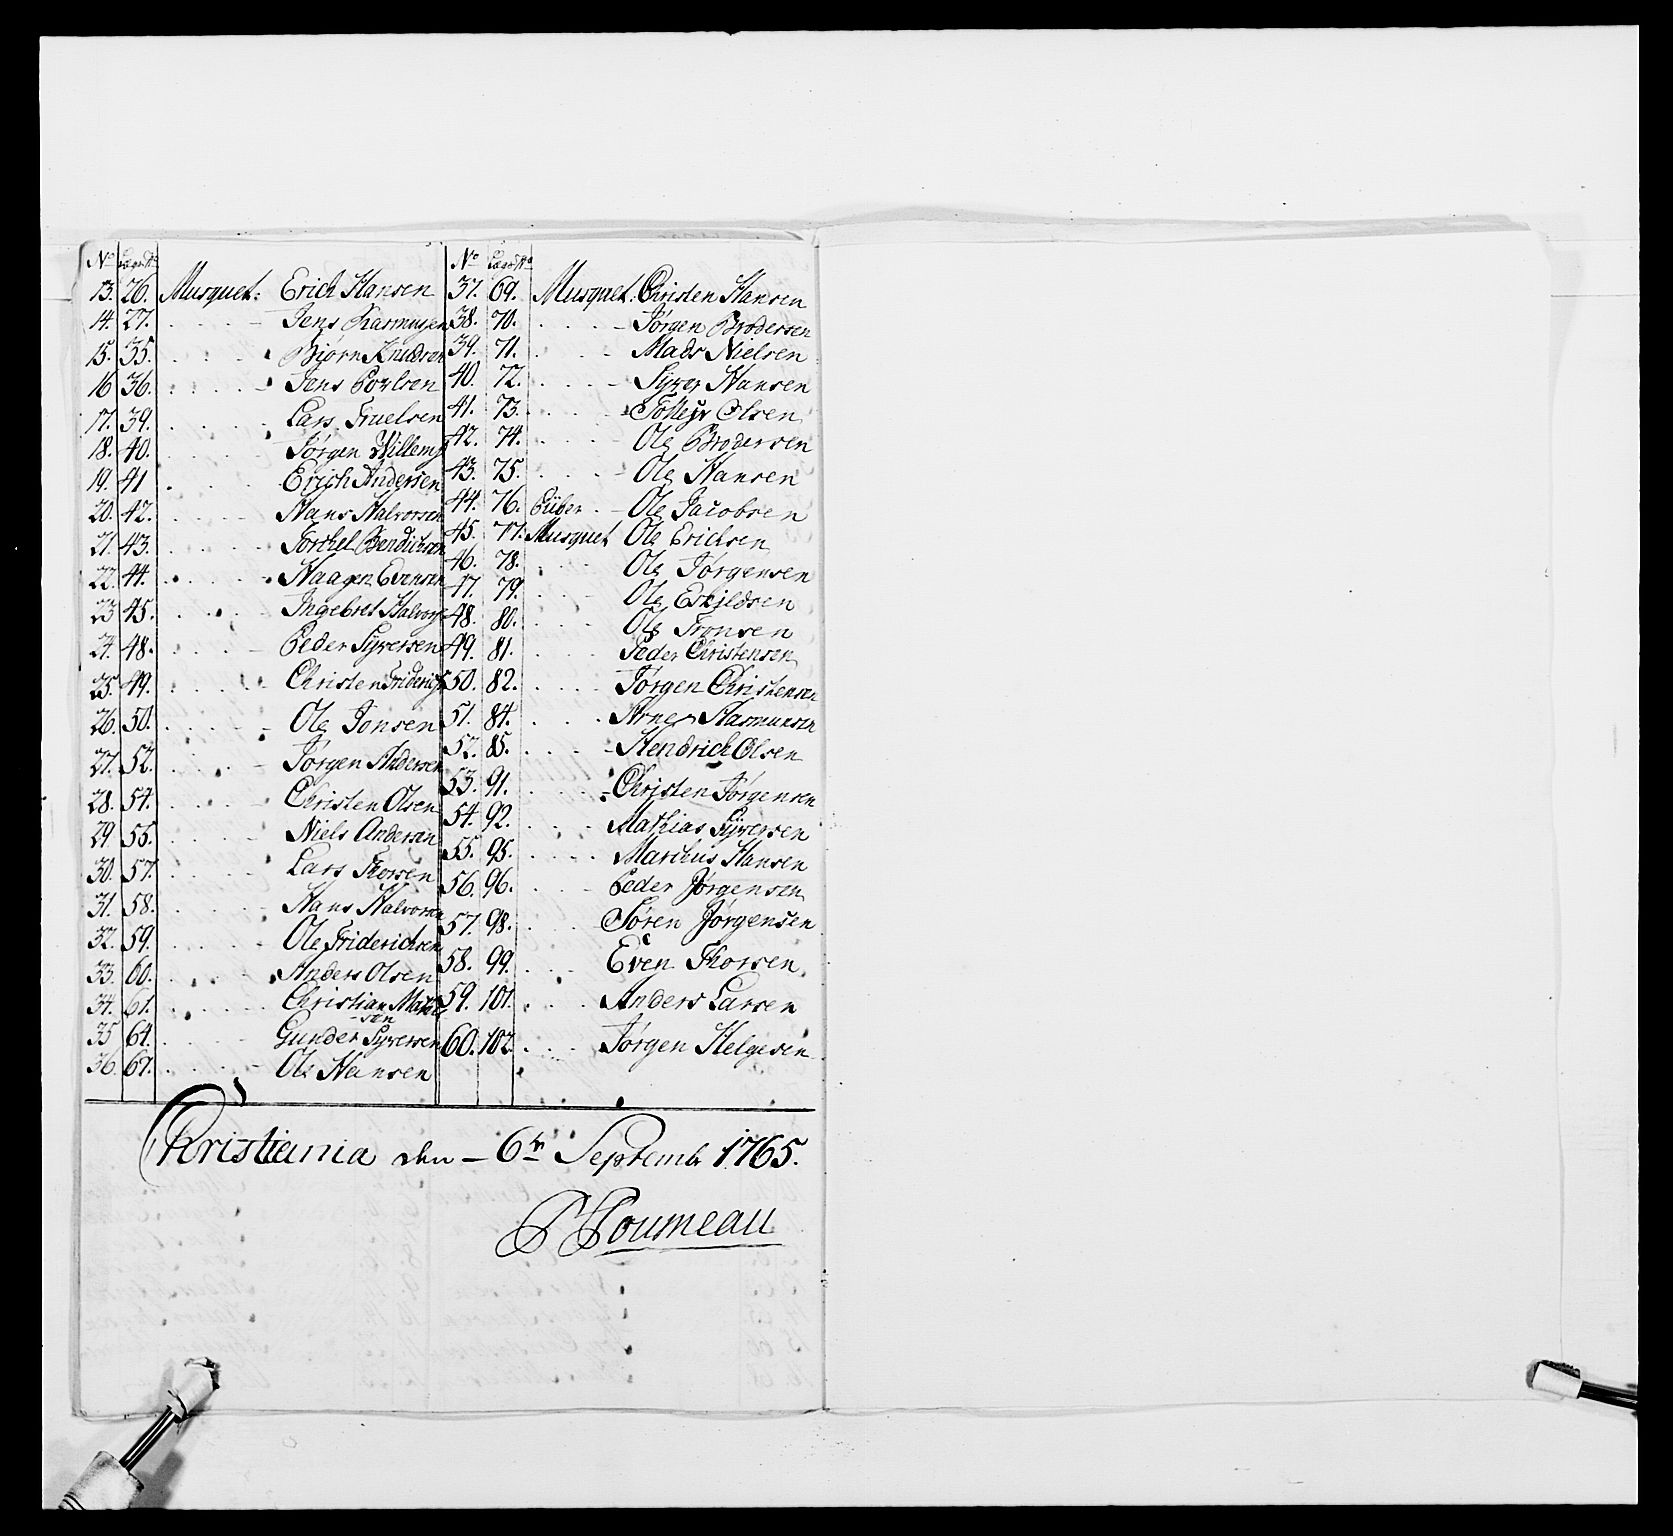 No Lægds No
13. 26. Musquet: Erich Hansen
14. 27. Jens Rasmussen
15. 35. Biørn Knudsen
16 36. Jens Povlsen
17. 39. Lars Truelsen
18. 40. Jørgen Willems
19. 41 Erich Andersen
20. 42. Hans Halvorsen
21. 43. Torchel Bendichsen
22. 44. Haagen Evensen
23 45. Ingebret Halvors
24. 48. Peder Syversen
25. 49. Christen Friderichs
26. 50. Ole Jonsen
27. 52. Jørgen Andersen
28. 54. Christen Olsen
29 55. Niels Andersen
30. 57. Lars Thorsen
31. 58. Hans Halvorsen
32. 59. Ole Friderichsen
33. 60. Anders Olsen
34. 61. Christian Mathi
-sen
35 64. Gunder Syversen
36. 67. Ole Hansen
No Lægds No
37. 69. Musquet: Christen Hansen
38. 70. Jørgen Brodersen
39. 71. Mads Nielsen
40. 72. Syver Hansen
41. 73. Tolleyv Olsen
42. 74. Ole Brodersen
43. 75. Ole Hansen
44. 76. Piiber Ole Jacobsen
45. 77. Musquet Ole Erichsen
46. 78. Ole Jørgensen
47. 79. Ole Eskildsen
48. 80. Ole Tronsen
49. 81. Peder Christensen
50. 82. Jørgen Christensen
51. 84. Arne Rasmunsen
52. 85. Hendrich Olsen
53. 91. Christen Jørgensen
54. 92. Mathias Syversen
55. 95. Marchus Hansen
56. 96. Peder Jørgensen
57. 98. Søren Jørgensen
58. 99. Even Thorsen
59. 101. Anders Larsen
60. 102. Jørgen Helgesen
Christiania den - 6tn Septembr 1765.
P Poumeau